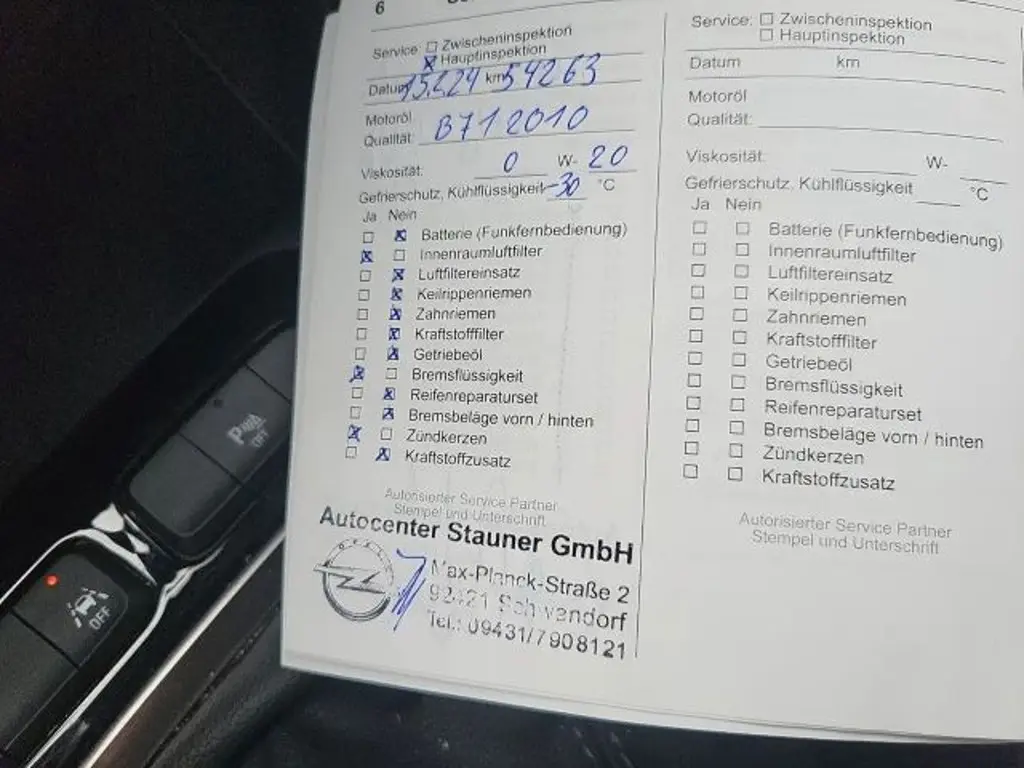 6
Service: ☐ Zwischeninspektion
☒ Hauptinspektion
Datum 15.2.24 km 54263
Motoröl
Qualität: B71 2010
Viskosität: 0 W- 20
Gefrierschutz, Kühlflüssigkeit -30 °C
Ja Nein
☐ ☒ Batterie (Funkfernbedienung)
☒ ☐ Innenraumluftfilter
☐ ☒ Luftfiltereinsatz
☐ ☒ Keilrippenriemen
☐ ☒ Zahnriemen
☐ ☒ Kraftstofffilter
☐ ☒ Getriebeöl
☒ ☐ Bremsflüssigkeit
☐ ☒ Reifenreparaturset
☐ ☒ Bremsbeläge vorn / hinten
☒ ☐ Zündkerzen
☐ ☒ Kraftstoffzusatz
Autorisierter Service Partner
Stempel und Unterschrift
Autocenter Stauner GmbH
OPEL
Max-Planck-Straße 2
92421 Schwandorf
Tel.: 09431/7908121
Service: ☐ Zwischeninspektion
☐ Hauptinspektion
Datum km
Motoröl
Qualität:
Viskosität: W-
Gefrierschutz, Kühlflüssigkeit °C
Ja Nein
☐ ☐ Batterie (Funkfernbedienung)
☐ ☐ Innenraumluftfilter
☐ ☐ Luftfiltereinsatz
☐ ☐ Keilrippenriemen
☐ ☐ Zahnriemen
☐ ☐ Kraftstofffilter
☐ ☐ Getriebeöl
☐ ☐ Bremsflüssigkeit
☐ ☐ Reifenreparaturset
☐ ☐ Bremsbeläge vorn / hinten
☐ ☐ Zündkerzen
☐ ☐ Kraftstoffzusatz
Autorisierter Service Partner
Stempel und Unterschrift
OFF
OFF